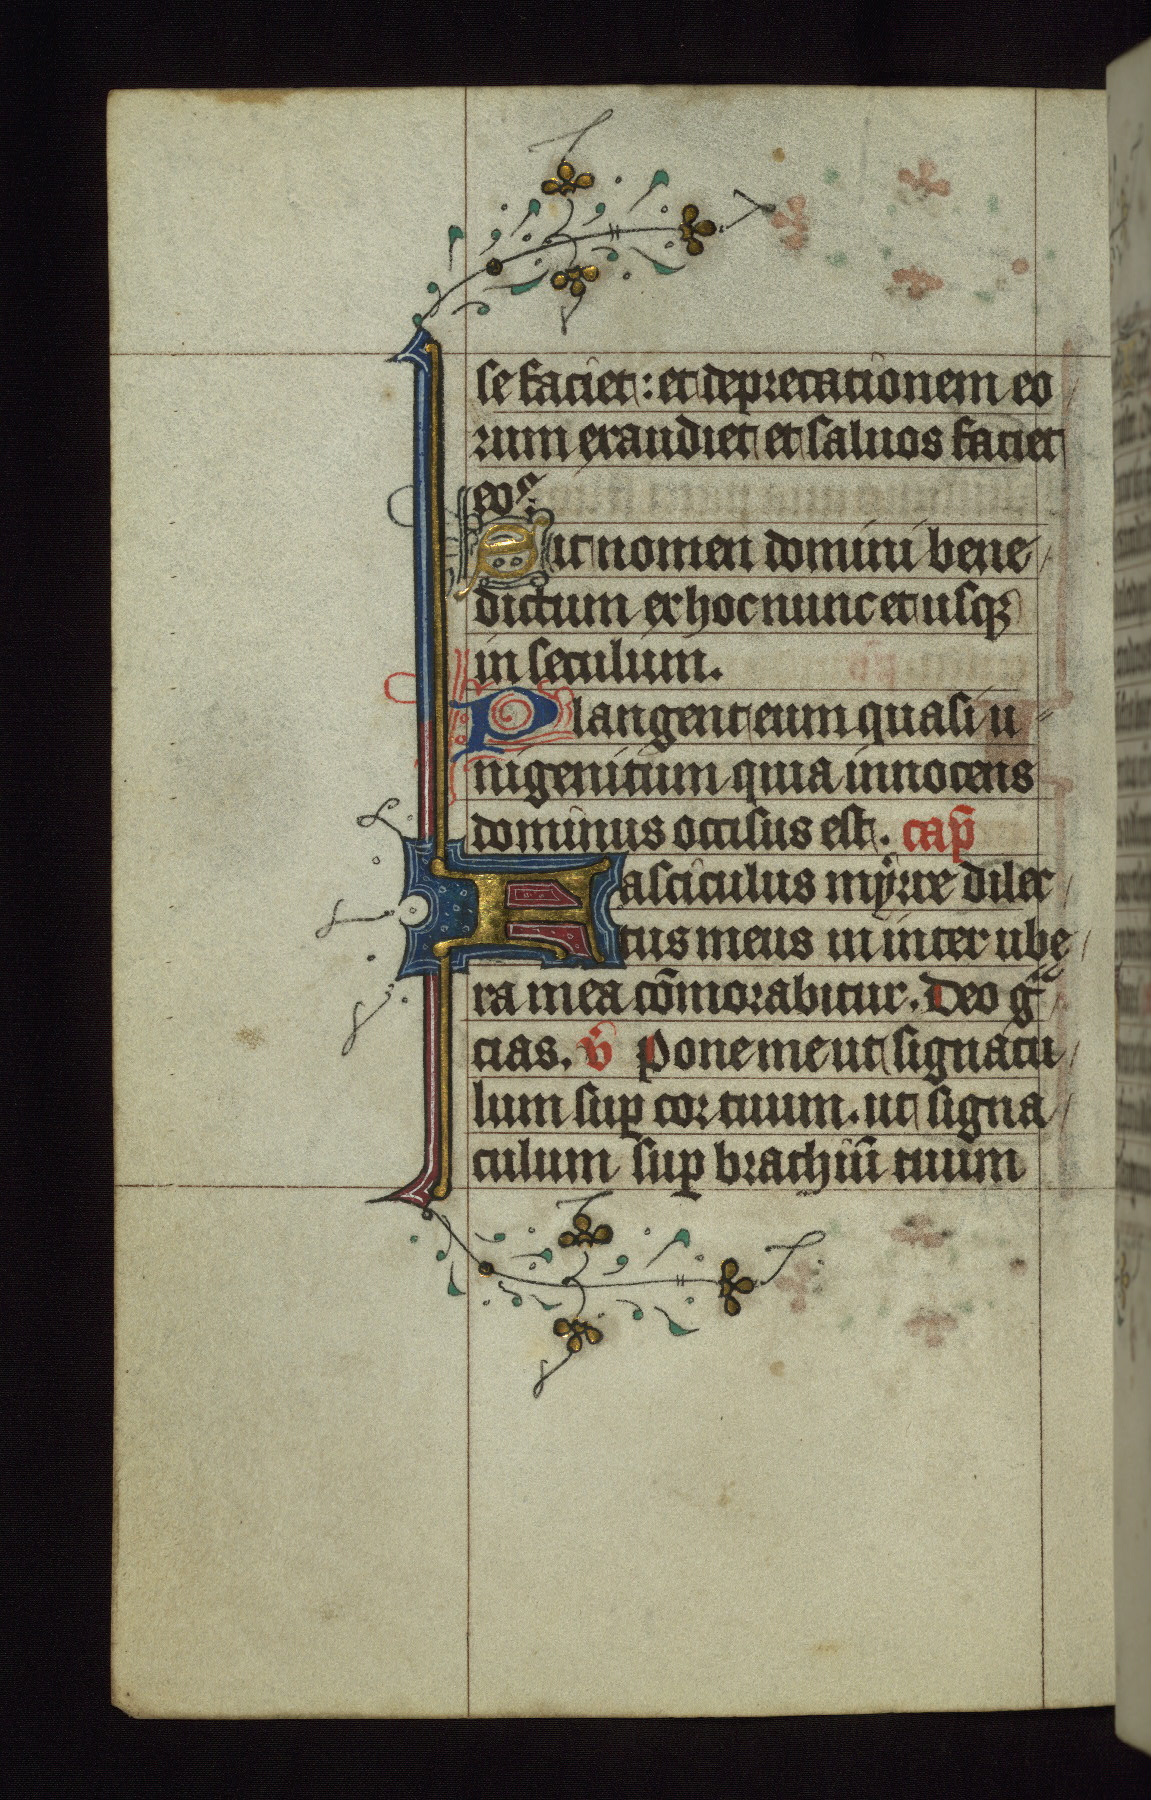 se faciet: et deprecationem eo
rum exaudiet et saluos faciet
eos.
Sit nomen domini bene
dictum ex hoc nunc et usqȝ
in seculum.
Plangent eum quasi u
nigenitum quia innocens
dominus occisus est. cap̄
Fasciculus myrre dilec
tus meus in inter ube
ra mea cōmorabitur. Deo g̃
cias. v̄ Pone me ut signacu
lum suꝑ cor tuum. ut signa
culum suꝑ brachiū tuum